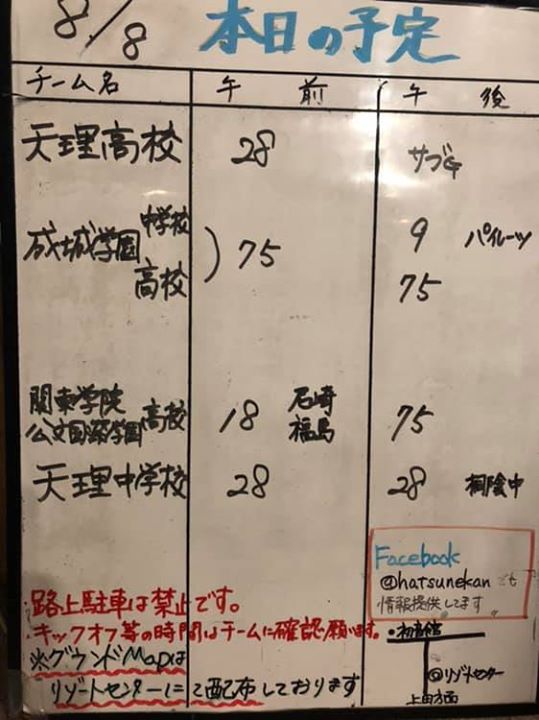 8/8 本日の予定
チーム名 午 前 午 後
天理高校 28 サブG
成城学園 中学校 高校 ) 75 9 パイレーツ
75
関東学院 高校 18 尼崎 75
公文国際学園 福島
天理中学校 28 28 桐陰中
Facebook
@hatsunekan でも
情報提供してます
路上駐車は禁止です。
・キックオフ等の時間はチームに確認願います。
※グランドMapは
リゾートセンターにて配布しております
・初音館
◎リゾートセンター
上田方面